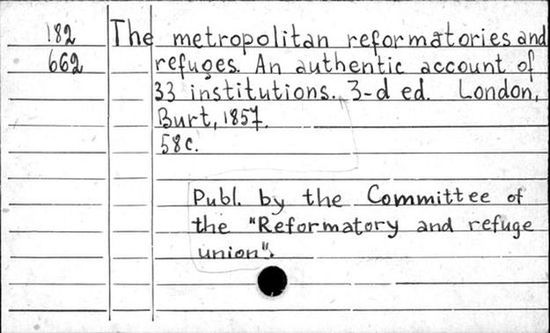 182
662
The metropolitan reformatories and
refuges. An authentic account of
33 institutions. 3-d ed. London,
Burt, 1857.
58c.
Publ. by the Committee of
the "Reformatory and refuge
union".